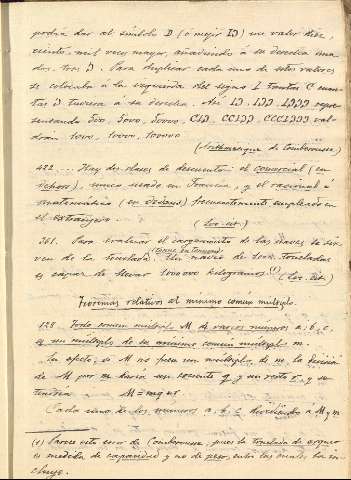 podria dar al símbolo D (ó mejor IↃ) un valor diez,
ciento, mil veces mayor, añadiendo á su derecha una,
dos, tres Ↄ. Para duplicar cada uno de estos valores
se colocaba á la izquierda del signo I tantas C cuan-
tas Ↄ tuviera á su derecha. Así IↃ, IↃↃ, IↃↃↃ repre-
sentando 500, 5000, 50000, CIↃ, CCIↃↃ, CCCIↃↃↃ val-
drán 1000, 10000, 100000
(Arithmétique de Combérousse)
422 ... Hay dos clases de descuento: el comercial (en
dehors), único usado en Francia, y el racional ó
matemático (en dedans) frecuentemente empleado en
el extranjero. (Loc. cit.)
381. Para evaluar el cargamento de las naves se sir-
ven de la tonelada. Una nave de 1000 toneladas
es capaz de llevar 1000000 kilogramos (1) (Loc. cit.)
Teoremas relativos al mínimo comun múltiplo.
128. Todo comun múltiplo M de varios números a, b, c,
es un múltiplo de su mínimo comun múltiplo m.
En efecto, si M no fuera un múltiplo de m, la división
de M por m daría un cociente q y un resto r, y se
tendria M=mq+r
Cada uno de los números a, b, c dividiendo á M y m
(1) Parece este error de Combérousse, pues la tonelada de arqueo
es medida de capacidad y no de peso, entre las cuales ha in-
cluye.